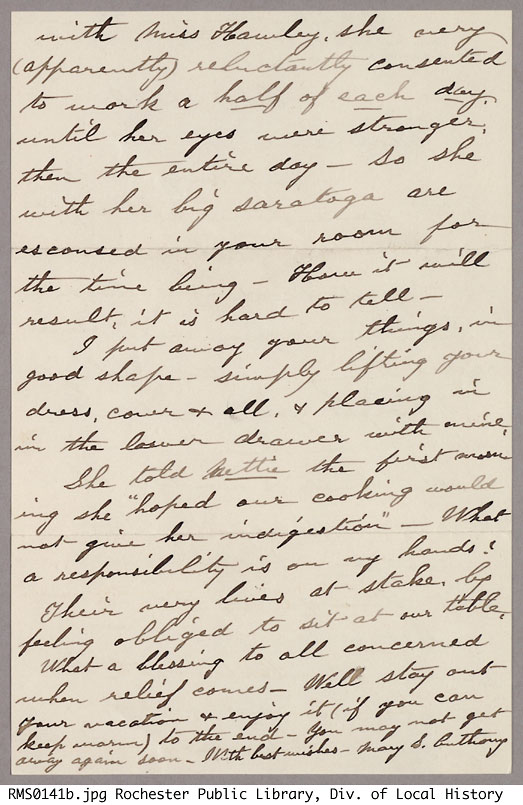 with Miss Hawley, she very
(apparently) reluctantly consented
to work a half of each day,
until her eyes were stronger,
then the entire day - So she
with her big saratoga are
esconsed in your room for
the time being - How it will
result, it is hard to tell -
I put away your things, in
good shape - simply lifting your
dress, cover & all, & placing in
in the lower drawer with mine.
She told Nettie the first morn-
ing she "hoped our cooking would
not give her indigestion" - What
a responsibility is on my hands!
Their very lives at stake, by
feeling obliged to sit at our table.
What a blessing to all concerned
when relief comes - Well stay out
your vacation & enjoy it (if you can
keep warm) to the end - You may not get
away again soon - With best wishes - Mary S. Anthony
RMS0141b.jpg Rochester Public Library, Div. of Local History